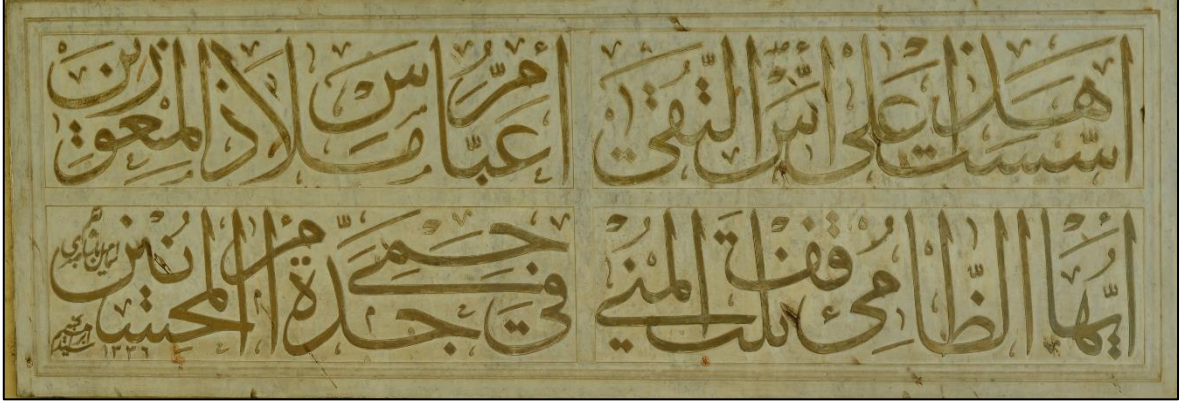 أسست هذا على أس التقى أم عباس ملاذ المعوزين
أيها الظامئ قف نلت المنى في حمى جدة أم المحسنين
١٣٣٦